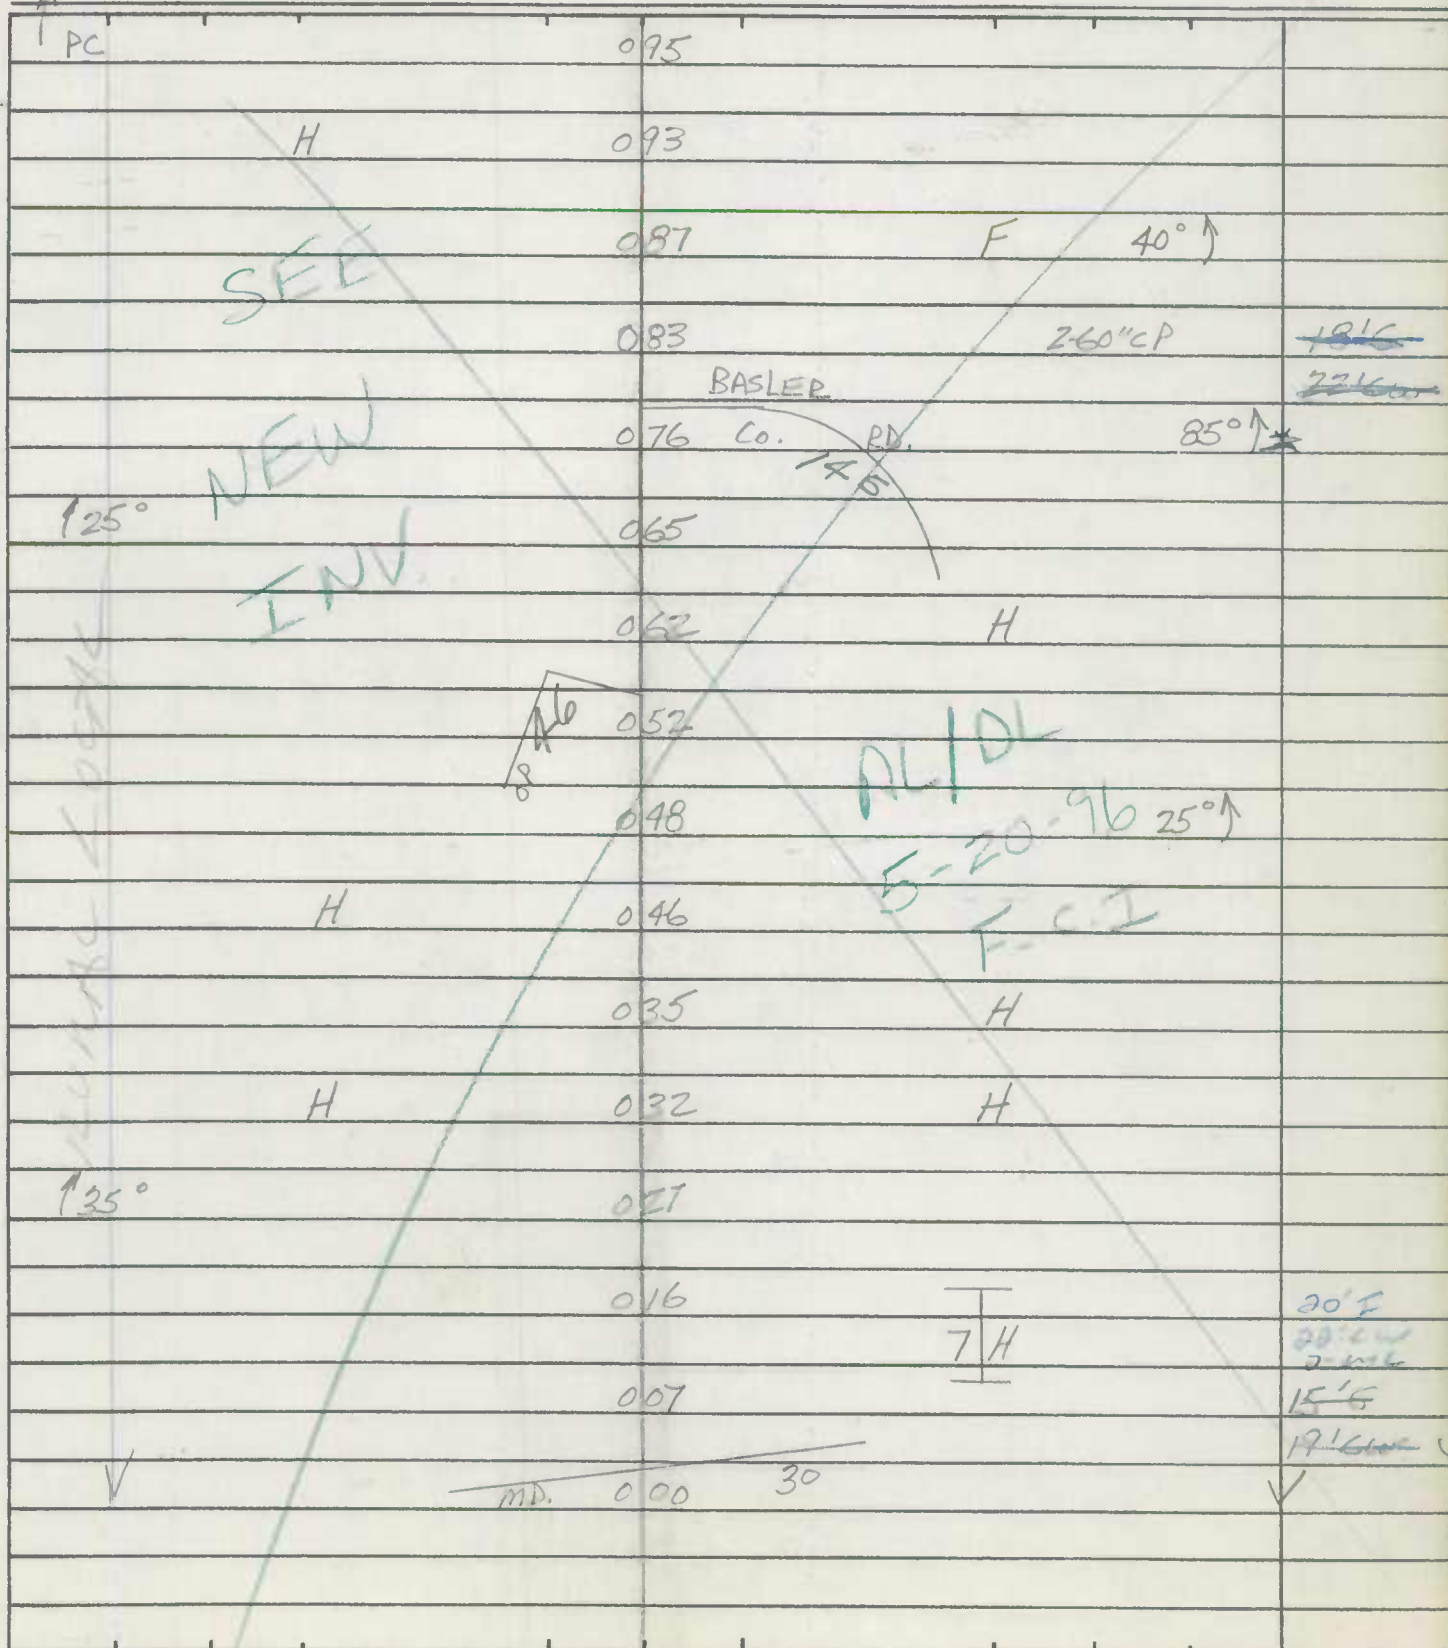 PC 0 95
H 0 93
0 87 F 40°
SEE
0 83 2-60"CP 18'G
BASLER
NEW 0 76 CO. RD. 85°
145
25° 0 65
INV.
0 62 H
46 0 52
AL/DL
0 48 5-20-96 25°
H 0 46 F.C.I
0 35 H
H 0 32 H
35° 0 27
0 16 20' I
7 H
0 07 15'G
MD. 0 00 30